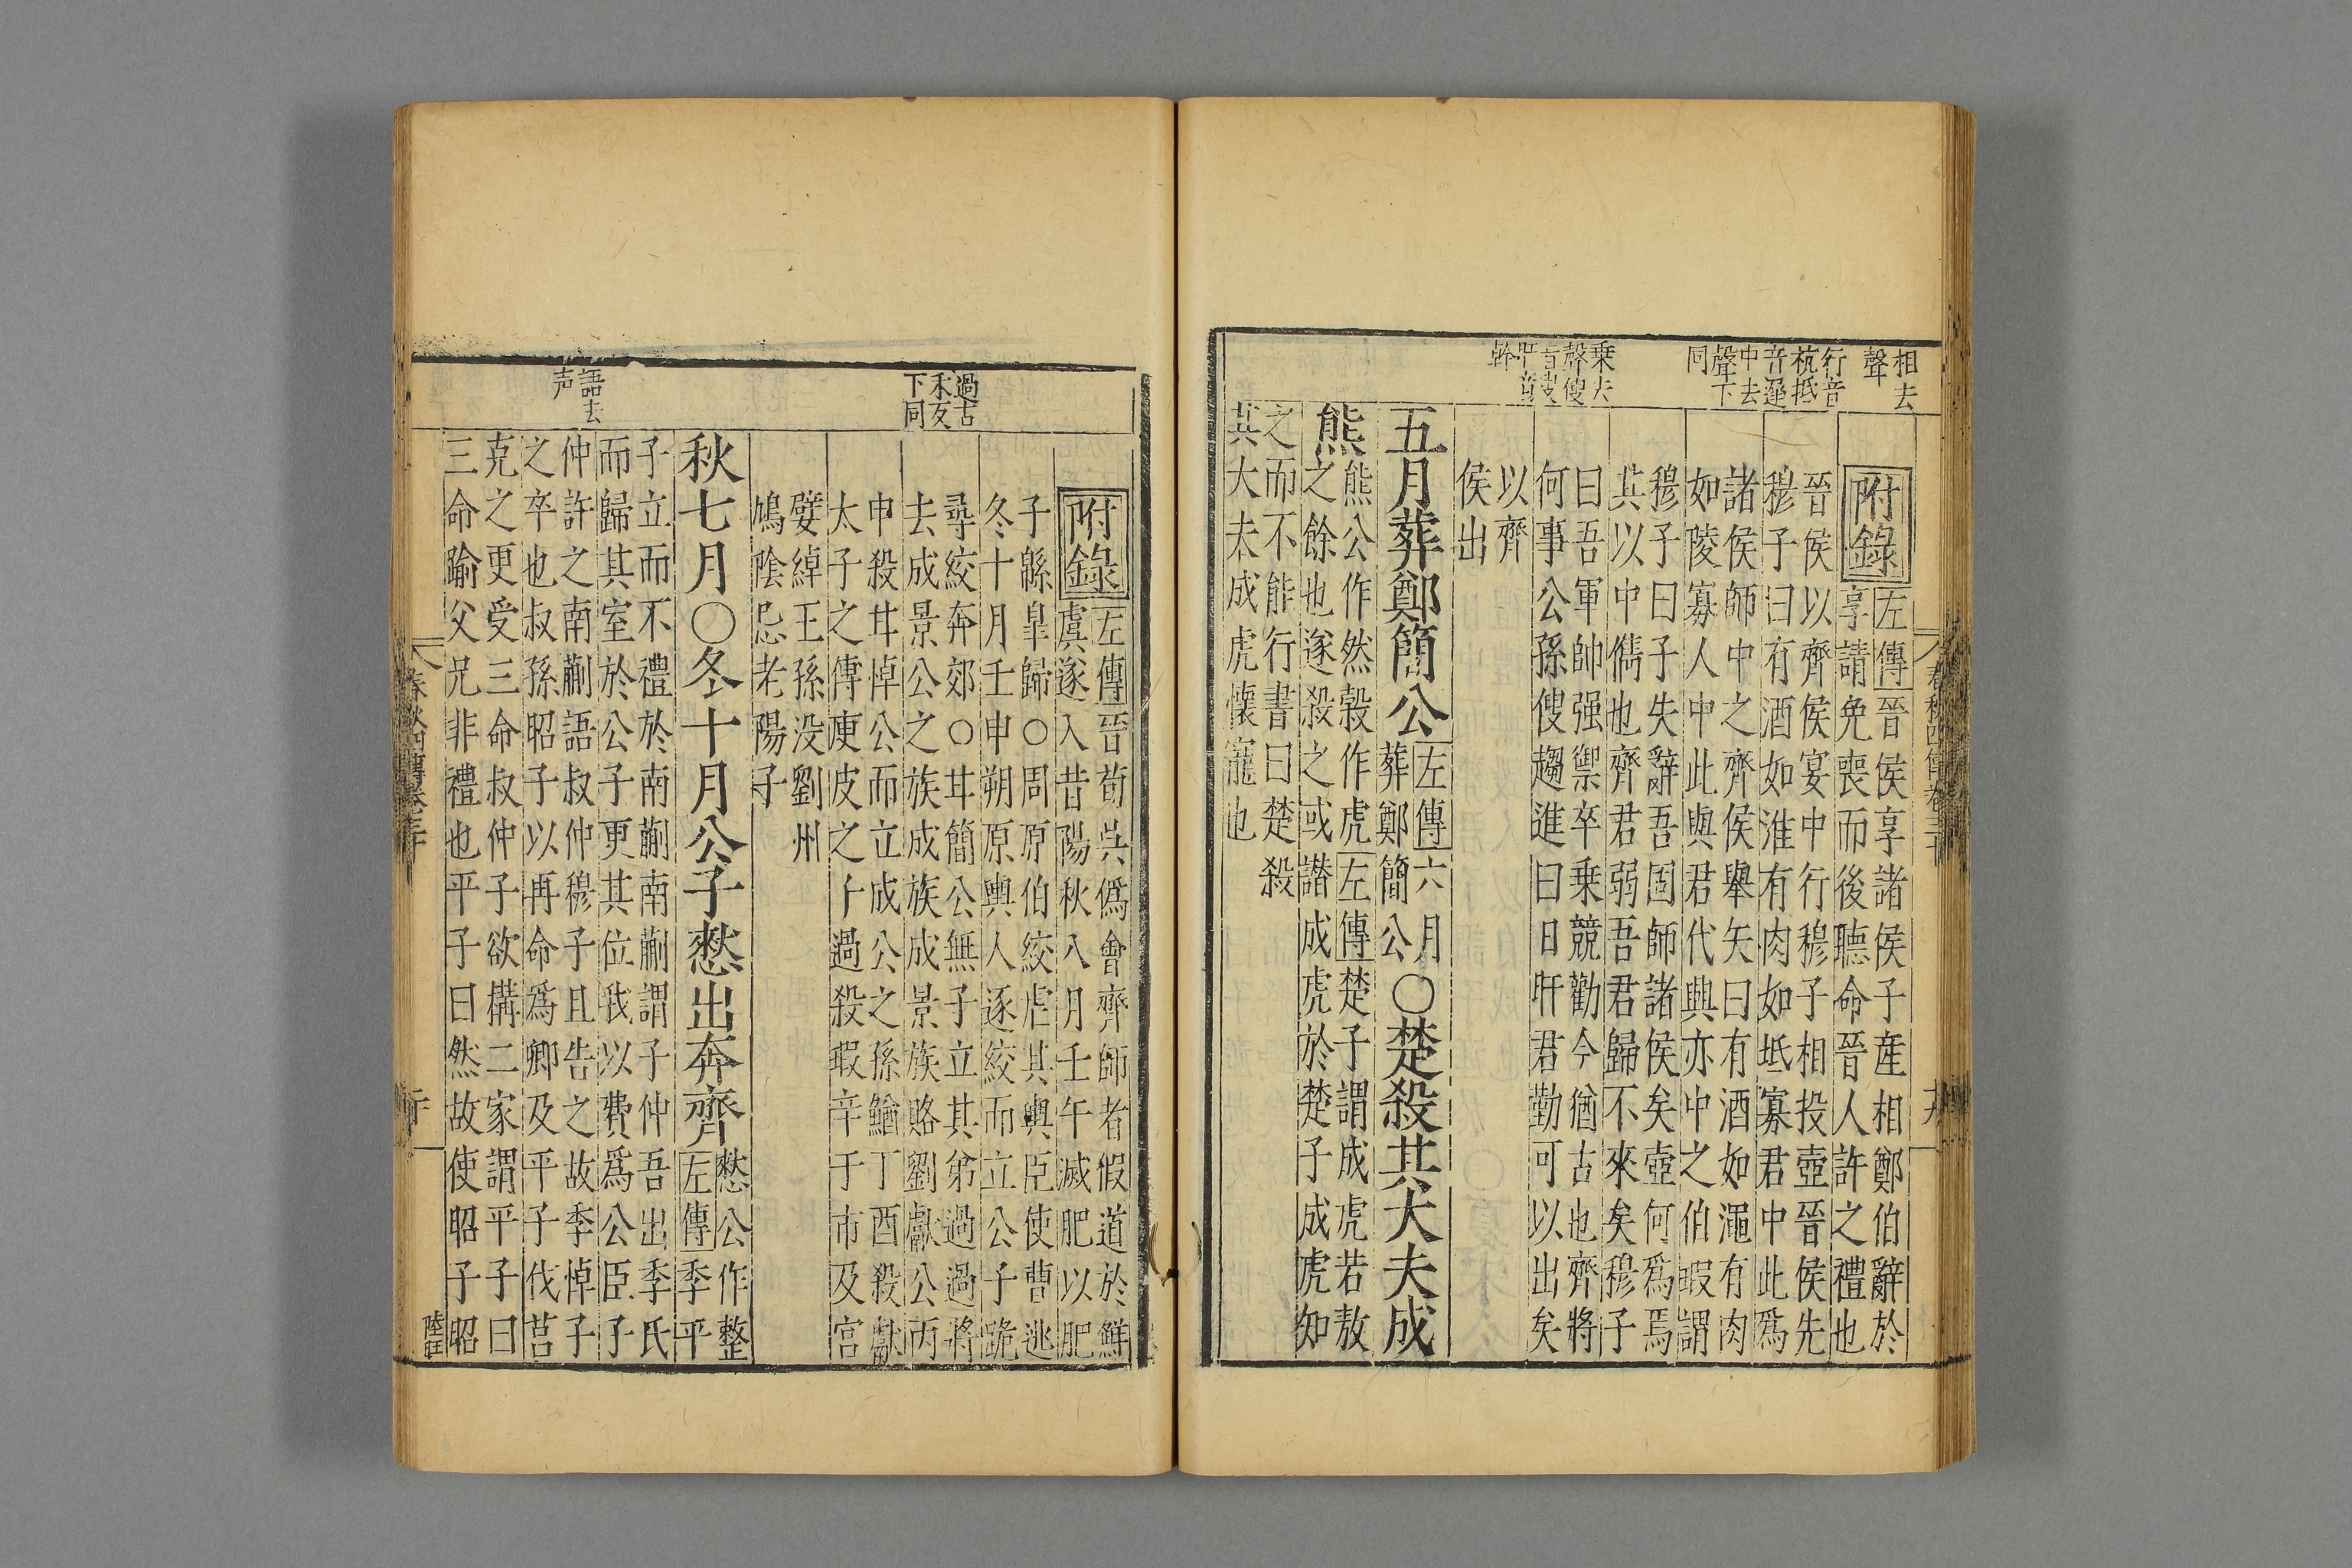 相去
聲
行音
杭抵
音遲
中去
聲下
同
乗去
聲傁
音叟
旰音
幹
附錄
左傳晉侯享諸侯子産相鄭伯辭於
享請免喪而後聽命晉人許之禮也
晉侯以齊侯宴中行穆子相投壺晉侯先
穆子曰有酒如淮有肉如坻寡君中此爲
諸侯師中之齊侯舉矢曰有酒如澠有肉
如陵寡人中此與君代興亦中之伯瑕謂
穆子曰子失辭吾固師諸侯矣壺何爲焉
其以中儁也齊君弱吾君歸不來矣穆子
曰吾軍帥强禦卒乗競勸今猶古也齊將
何事公孫傁趨進曰日旰君勤可以出矣
以齊
侯出
五月葬鄭簡公
左傳六月
葬鄭簡公
〇楚殺其大夫成
熊
熊公作然穀作虎左傳楚子謂成虎若敖
之餘也遂殺之或譖成虎於楚子成虎知
之而不能行書曰楚殺
其大夫成虎懷寵也
春秋四傳卷三十
十九
過古
禾友
下同
語去
声
附錄
左傳晉荀吳僞會齊師者假道於鮮
虞遂入昔陽秋八月壬午滅肥以肥
子緜臯歸〇周原伯絞虐其輿臣使曹逃
冬十月壬申朔原輿人逐絞而立公子跪
尋絞奔郊〇甘簡公無子立其弟過過將
去成景公之族成族成景族賂劉獻公丙
申殺甘悼公而立成公之孫鰌丁酉殺獻
太子之傅庾皮之子過殺瑕辛于市及宮
嬖綽王孫没劉州
鳩陰忌老陽子
秋七月〇冬十月公子憖出奔齊
憖公作整
左傳季平
子立而不禮於南蒯南蒯謂子仲吾出季氏
而歸其室於公子更其位我以費爲公臣子
仲許之南蒯語叔仲穆子且告之故季悼子
之卒也叔孫昭子以再命爲卿及平子伐莒
克之更受三命叔仲子欲構二家謂平子曰
三命踰父兄非禮也平子曰然故使昭子昭
春秋四傳卷三十
二十